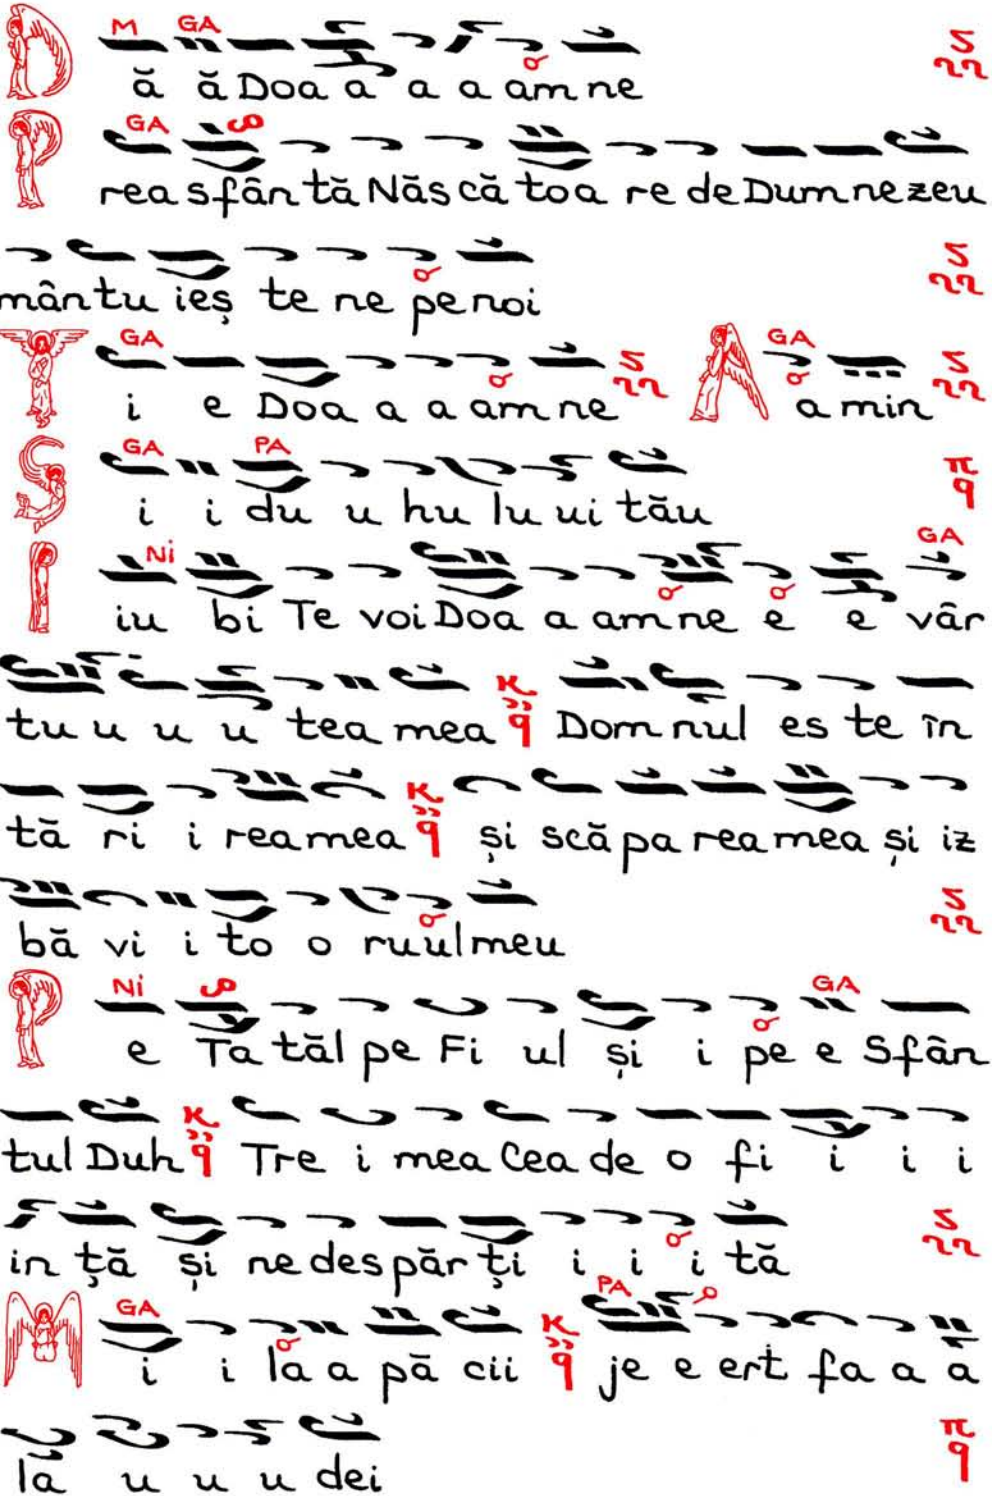 M GA
D ă ă Doa a a a am ne
GA
P rea sfân tă Năs că toa re de Dum ne zeu
mân tu ieș te ne pe noi
GA GA
T i e Doa a a am ne A a min
GA PA
S i i du u hu lu ui tău π q
Ni GA
I iu bi Te voi Doa a am ne e e vâr
tu u u u tea mea Dom nul es te în
tă ri i rea mea și scă pa rea mea și iz
bă vi i to o ru ul meu
Ni GA
P e Ta tăl pe Fi ul și i pe e Sfân
tul Duh Tre i mea Cea de o fi i i i
in ță și ne des păr ți i i i tă
GA PA
M i i la a pă cii je e ert fa a a
la u u u dei π q